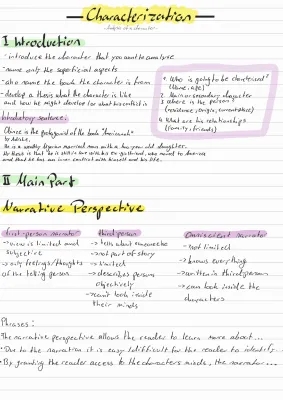 Characterization
I Introduction
- introduce the character that you want to analyse
- name only the superficial aspects
- also name the book the character is from
- develop a thesis what the character is like
and how he might develop (or what his conflict is
1. Who is going to be charterized?
(Name, age)
2. Main or secondary character
3. Where is the person?
(residence, origin, circumstance)
4. What are his relationships
(family, friends)
Introductory sentence:
Obinze is the protagonist of the book "Americanah"
by Adichie.
He is a wealthy Nigerian married man with a two year old daughter.
My thesis is that he is still in love with his Ex-girlfriend, who moved to America
and that he has an inner conflict with himself and his life.
II Main Part
Narrative Perspective
first-person narrator
-> view is limited and
subjective
-> only feelings/thoughts
of the telling person
third person
-> tells about someone else
-> not part of story
-> limited
-> describes person
objectively
-> can't look inside
their minds
Omniscient narrator
-> not limited
-> knows everything
-> written in third person
-> can look inside the
characters
Phrases:
- The narrative perspective allows the reader to learn more about...
- Due to the narration it is easy/difficult for the reader to identify...
- By granting the reader access to the characters minds, the narrator...